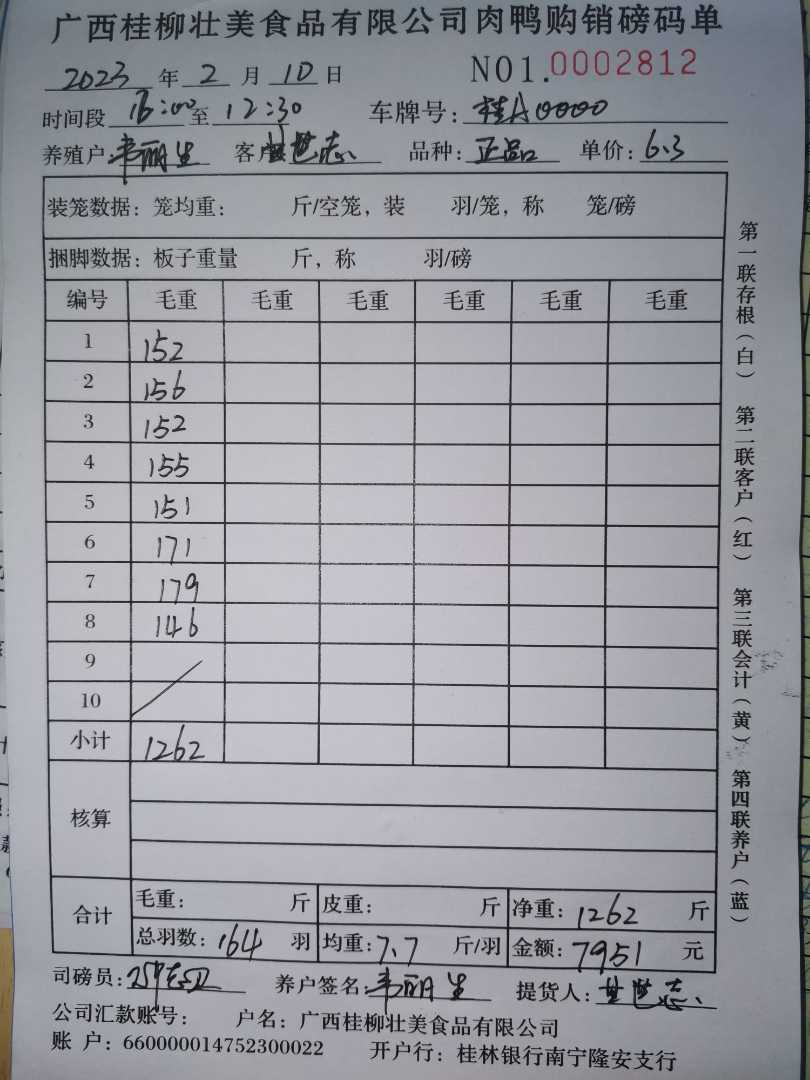 广西桂柳壮美食品有限公司肉鸭购销磅码单
2023 年 2 月 10 日 NO1.0002812
时间段 16:00 至 12:30 车牌号: 桂A0000
养殖户 韦丽生 客户 世志 品种: 正品 单价: 6.3
装笼数据: 笼均重: 斤/空笼, 装 羽/笼, 称 笼/磅
捆脚数据: 板子重量 斤, 称 羽/磅
编号 毛重 毛重 毛重 毛重 毛重 毛重
1 152
2 156
3 152
4 155
5 151
6 171
7 179
8 146
9
10
小计 1262
核算
合计 毛重: 斤 皮重: 斤 净重: 1262 斤
总羽数: 164 羽 均重: 7.7 斤/羽 金额: 7951 元
司磅员: 养户签名: 韦丽生 提货人: 世志
公司汇款账号: 户名: 广西桂柳壮美食品有限公司
账 户: 660000014752300022 开户行: 桂林银行南宁隆安支行
第一联存根(白) 第二联客户(红) 第三联会计(黄) 第四联养户(蓝)